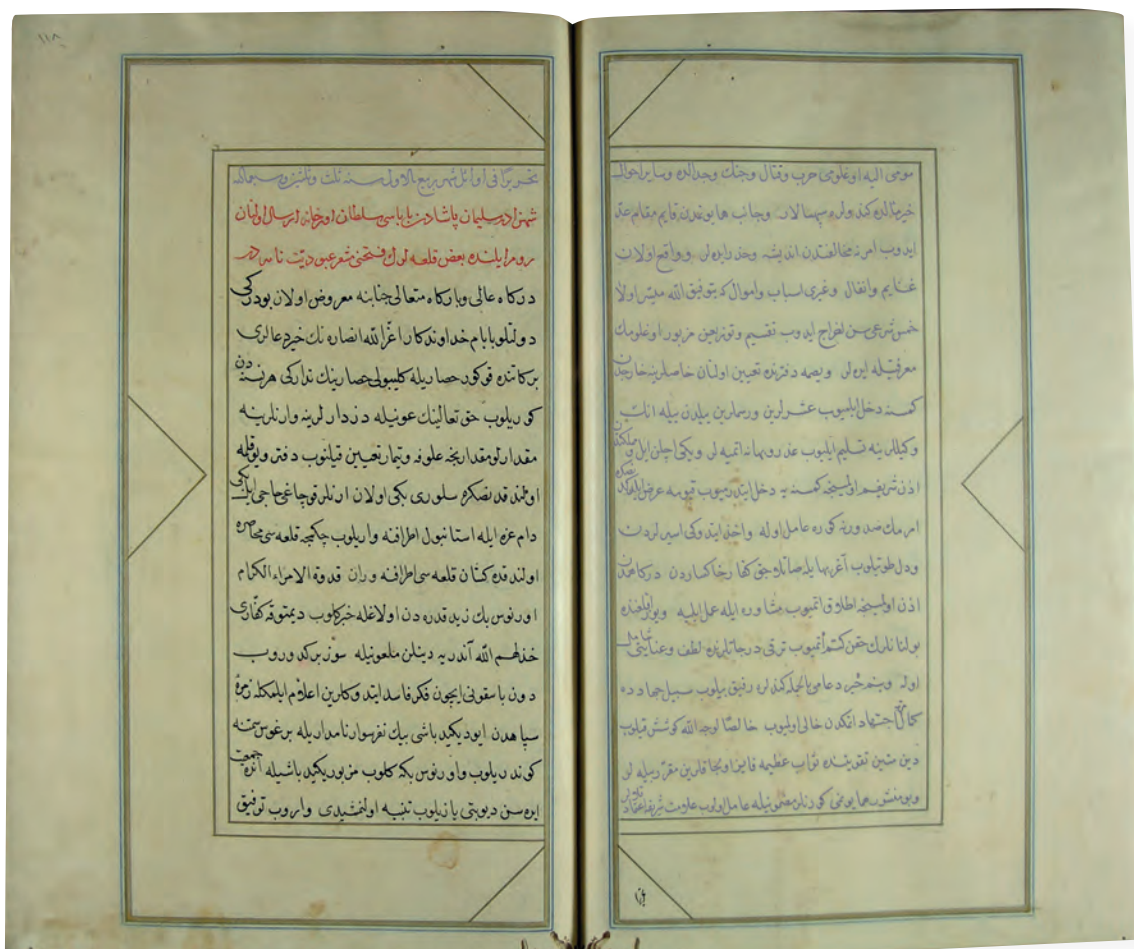 مومى اليه اوغلومى حرب وقتال وجنك وجدالده وساير احوالـ
خيرمالده كندولره سپهسالار وجانب همايونمدن قايم مقام عد
ايدوب امرنه مخالفتدن انديشه وحذر ايده لر وواقع اولان
غنايم وانفال وغيرى اسباب واموال كه بتوفيق الله ميسر اولا
خمس شرعى سن اخراج ايدوب تقسيم وتوزيعن مزبور اوغلومك
معرفتيله ايده لر وبصمه دفترنده تعيين اولنان خاصلرينه خارجدن
كمسنه دخل ايلميوب عشرلرين ورسملرين بيلدن بيله انك
وكيللرينه تسليم ايليوب عذر وبهانه اتميه لر ويكى اچلن ايل ومملكته
اذن شريفم اولمينجه كمسنه يه دخل ايتدرميوب قپومه عرض ايلدكدنصكره
امرمك ضدورنه كوره عامل اوله واخذ ايتدوكى اسيرلردن
ودل طوتيلوب آغر بها يله صاتلوجق كفار خاكساردن دركاهمدن
اذن اولمينجه اطلاق اتميوب مشاوره ايله عمل ايليه ويولداشلقده
بولنانلرك حقن كتم اتميوب ترقى درجاتلرنده لطف وعنايتى شامل
اوله وبنم خير دعامى بالجمله كندلره رفيق بيلوب سبيل جهادده
كمال اجتهاد اتمكدن خالى اولميوب خالصا لوجه الله كوشش قيلوب
دين متين تقويتنده ثواب عظيمه قايز اوله جقلرين مقرر بيله لر
وبو منشور همايونمى كورنلر مضمونيله عامل اولوب علامت شريفه اعتماد قيله لر
١١٨
تحريرًا فى اوائل شهر ربيع الاول سنه ثلث وثلثين وسبعمائه
شهزاده سليمان پاشادن باباسى سلطان اورخانه ارسال اولنان
روم ايلنده بعض قلعه لرك فتحنى مشعر عبوديت نامه در
دركاه عالى وباركاه متعالى جنابنه معروض اولان بودركى
دولتلو بابام خداوندكار اعز الله انصاره نك خير دعالرى
بركاتنده قوكور حصاريله كليبولى حصارينك تداركى هر نسنه دن
كوريلوب حق تعالينك عونيله دزدارلرينه وارنلرينه
مقدارلو مقدارينجه علوفه وتيمار تعيين قيلنوب دفتر ويوقله
اولندقدنصكره سلورى بكى اولان ارنلر قوچاغى حاجى ايلبكى
دام عزه ايله استانبول اطرافنه واريلوب چكمجه قلعه سى محاصره
اولندقده كتان قلعه سى اطرافنه وران قدوة الامراء الكرام
اورنوس بك زيد قدره دن اولاغله خبر كلوب ديمتوقه كفارى
خذلهم الله آندريه دينلن ملعونيله سوز بر كدوروب
دون باسقونى ايچون فكر فاسد ايتدوكلرين اعلام ايلمكله زمرهٔ
سپاهدن ايو ديكيد باشى بيك نفر سوار نامداريله برغوس سمتنه
كوندريلوب واورنوس بكه كلوب مزبور يكيد باشيله آنده جمعيت
ايده سن ديو بتى يازيلوب تنبيه اولنمشيدى واروب توفيق